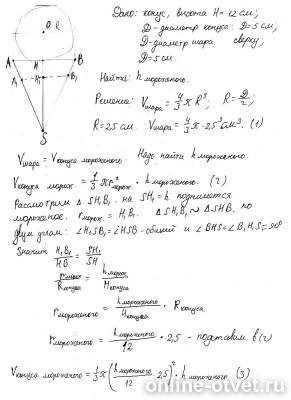 O R
Дано: конус, высота H = 12 см;
D - диаметр конуса: D = 5 см
D - диаметр шара сверху;
D = 5 см.
A H B
A₁ H₁ B₁
S
Найти: h мороженого.
Решение: Vшара = 4/3 π R³; R = D/2;
R = 2,5 см. Vшара = 4/3 π · 2,5³ см³. (1)
Vшара = Vконуса мороженого. Надо найти h мороженого.
Vконуса морож. = 1/3 π r² морож. · h мороженого. (2)
Рассмотрим Δ SH₁B₁. на SH₁ = h поднимется
мороженое. rморож. = H₁B₁. Δ SH₁B₁ ∾ Δ SHB. по
двум углам: ∠H₁SB₁ = ∠HSB - общий и ∠BHS = ∠B₁H₁S = 90°
Значит H₁B₁/HB = SH₁/SH
rморож/Rконуса = hморож./Hконуса
rмороженого = hмороженого/Hконуса · Rконуса
rмороженого = hмороженого/12 · 2,5 - подставим в (2)
Vконуса мороженого = 1/3 π (hмороженого/12 · 2,5)² · hмороженого (3)
online-otvet.ru